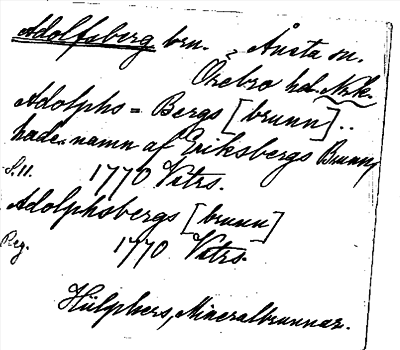 Adolfsberg brn. i Ånsta sn.
Örebro hd. Nrk.
Adolphs = Bergs [brunn] ..
hade namn af Eriksbergs Brunn,
S. 11. 1770 Vtrs.
Adolphsbergs [brunn]
Reg. 1770 Vtrs.
Hülphers, Mineralbrunnar.